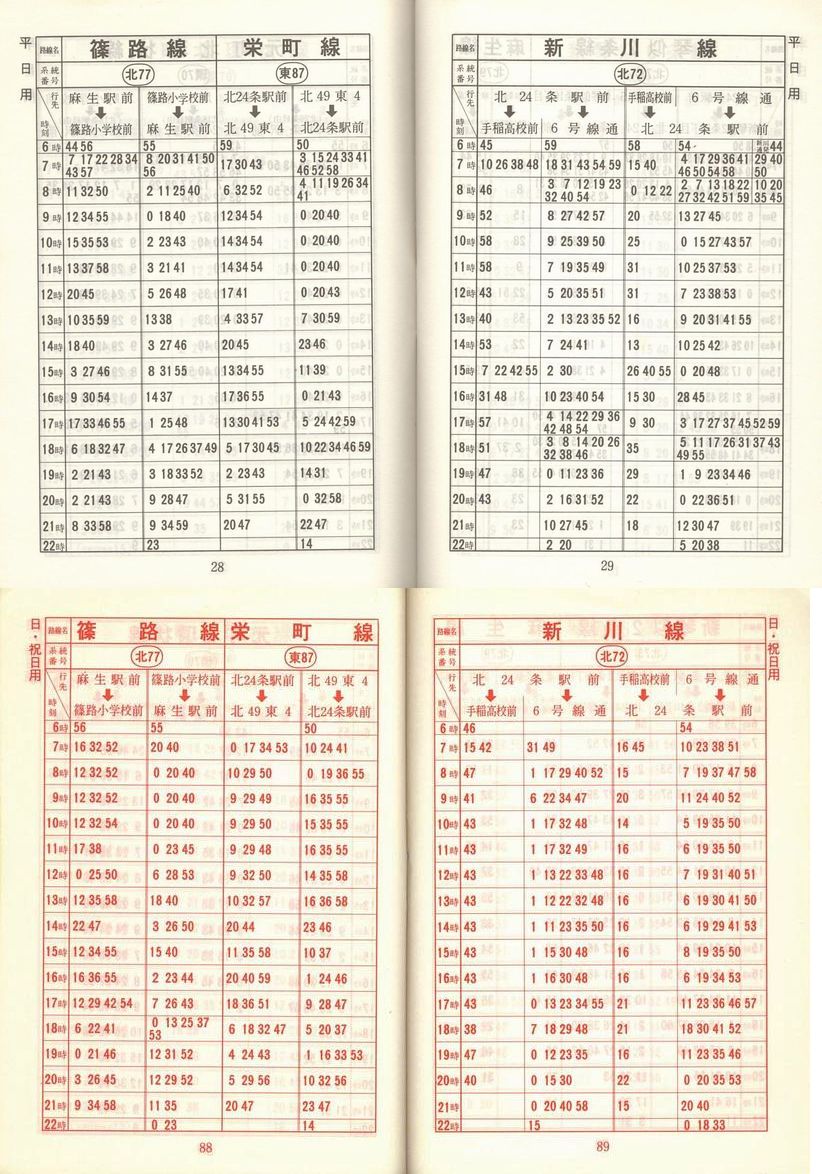 平日用
路線名 篠路線 栄町線
系統番号 北77 東87
行先 麻生駅前 篠路小学校前 北24条駅前 北49東4
時刻 篠路小学校前 麻生駅前 北49東4 北24条駅前
6時 44 56 55 59 50
7時 7 17 22 28 34 8 20 31 41 50 17 30 43 3 15 24 33 41
43 57 56 46 52 58
8時 11 32 50 2 11 25 40 6 32 52 4 11 19 26 34
41
9時 12 34 55 0 18 40 12 34 54 0 20 40
10時 15 35 53 2 23 43 14 34 54 0 20 40
11時 13 37 58 3 21 41 14 34 54 0 20 40
12時 20 45 5 26 48 17 41 0 20 43
13時 10 35 59 13 38 4 33 57 7 30 59
14時 18 40 3 27 46 20 45 23 46
15時 3 27 46 8 31 55 13 34 55 11 39
16時 9 30 54 14 37 17 36 55 0 21 43
17時 17 33 46 55 1 25 48 13 30 41 53 5 24 42 59
18時 6 18 32 47 4 17 26 37 49 5 17 30 45 10 22 34 46 59
19時 2 21 43 3 18 33 52 2 23 43 14 31
20時 2 21 43 9 28 47 5 31 55 0 32 58
21時 8 33 58 9 34 59 20 47 22 47
22時 23 14
28
平日用
路線名 新川線
系統番号 北72
行先 北24条駅前 手稲高校前 6号線通
時刻 手稲高校前 6号線通 北24条駅前
6時 45 59 58 54 44
7時 10 26 38 48 18 31 43 54 59 15 40 4 17 29 36 41 29 40
46 50 54 58 50
8時 46 3 7 12 19 23 0 12 22 2 7 13 18 22 10 20
32 40 54 27 32 42 51 59 35 45
9時 52 8 27 42 57 20 13 27 45
10時 58 9 25 39 50 25 0 15 27 43 57
11時 58 7 19 35 49 31 10 25 37 53
12時 43 5 20 35 51 31 7 23 38 53
13時 40 2 13 23 35 52 16 9 20 31 41 55
14時 53 7 24 41 13 10 25 42
15時 7 22 42 55 2 30 26 40 55 0 20 48
16時 31 48 10 23 40 54 15 30 28 45
17時 57 4 14 22 29 36 9 30 3 17 27 37 45 52 59
42 48 54
18時 51 3 8 14 20 26 35 5 11 17 26 31 37 43
32 38 46 49 55
19時 47 0 11 23 36 29 1 9 23 34 46
20時 43 2 16 31 52 22 0 22 36 51
21時 10 27 45 18 12 30 47
22時 2 20 5 20 38
29
日・祝日用
路線名 篠路線 栄町線
系統番号 北77 東87
行先 麻生駅前 篠路小学校前 北24条駅前 北49東4
時刻 篠路小学校前 麻生駅前 北49東4 北24条駅前
6時 56 55 50
7時 16 32 52 20 40 0 17 34 53 10 24 41
8時 12 32 52 0 20 40 10 29 50 0 19 36 55
9時 12 32 52 0 20 40 9 29 49 16 35 55
10時 12 32 54 0 20 40 9 29 50 15 35 55
11時 17 38 0 23 45 9 29 48 16 35 55
12時 0 25 50 6 28 53 9 32 50 14 35 58
13時 12 35 58 18 40 10 32 57 16 36 58
14時 22 47 3 26 50 20 44 23 46
15時 12 34 55 15 40 11 35 58 10 37
16時 16 36 55 2 23 44 20 40 59 1 24 46
17時 12 29 42 54 7 26 43 18 36 51 9 28 47
18時 6 22 41 0 13 25 37 6 18 32 47 5 20 37
53
19時 0 21 46 12 31 52 4 24 43 1 16 33 53
20時 3 26 45 12 29 52 5 29 56 10 32 56
21時 9 34 58 11 35 20 47 23 47
22時 0 23 14
88
日・祝日用
路線名 新川線
系統番号 北72
行先 北24条駅前 手稲高校前 6号線通
時刻 手稲高校前 6号線通 北24条駅前
6時 46 54
7時 15 42 31 49 16 45 10 23 38 51
8時 47 1 17 29 40 52 15 7 19 37 47 58
9時 41 6 22 34 47 20 11 24 40 52
10時 43 1 17 32 48 14 5 19 35 50
11時 43 1 17 32 49 16 6 19 35 50
12時 43 1 13 22 33 48 16 7 19 31 40 51
13時 43 1 12 22 32 48 16 6 19 30 41 50
14時 43 1 11 23 35 50 16 6 19 29 41 53
15時 43 1 15 30 48 16 8 19 35 50
16時 43 1 16 30 48 16 6 19 34 53
17時 43 0 13 23 34 55 21 11 23 36 46 57
18時 38 7 18 29 48 21 18 30 41 52
19時 47 0 12 23 35 16 11 23 35 46
20時 40 0 15 30 22 0 20 35 53
21時 0 20 40 58 15 20 40
22時 15 0 18 33
89